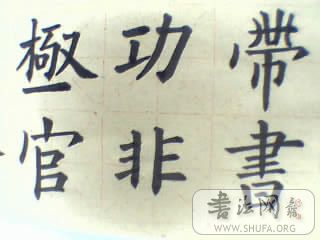 帶書
功非
極官
書法网
WWW.SHUFA.ORG